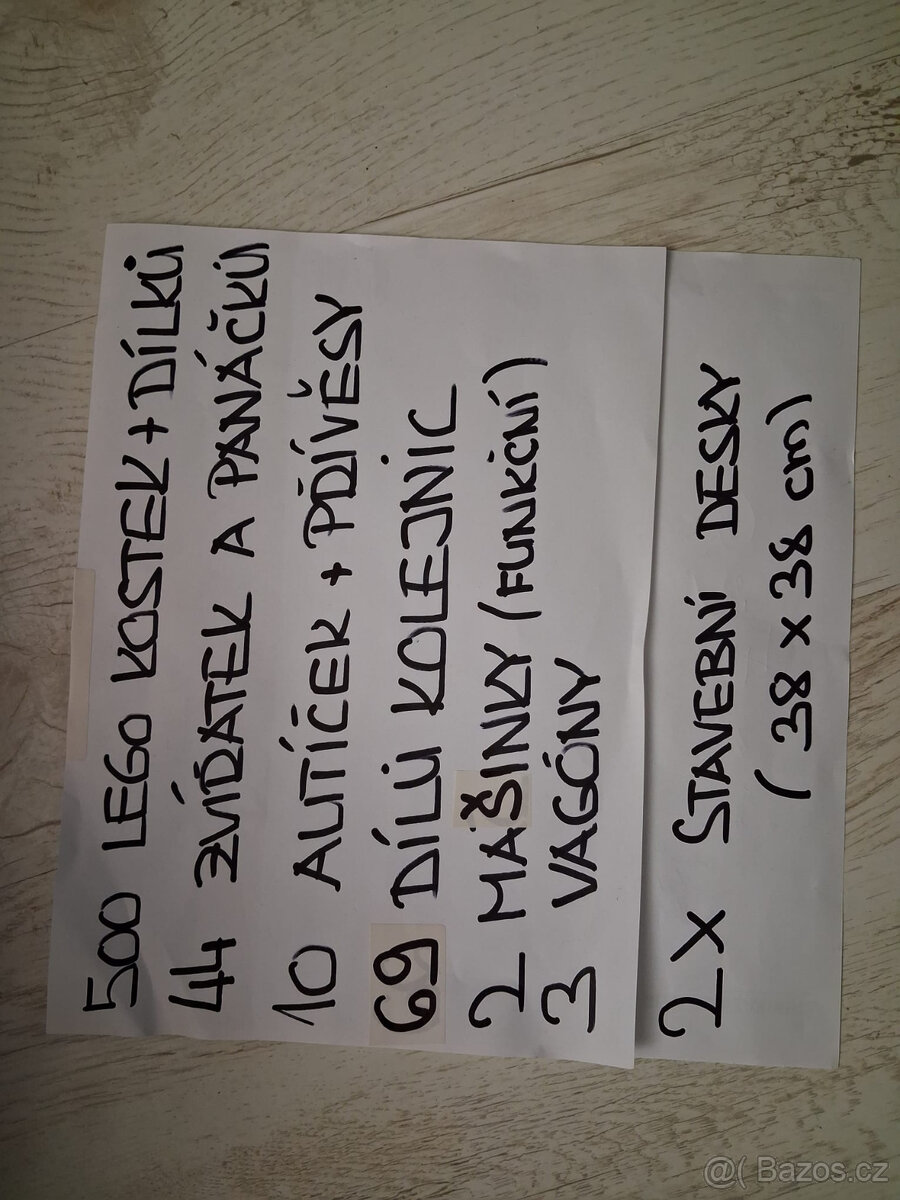 500 LEGO KOSTEK + DÍLKŮ
44 ZVÍŘÁTEK A PANÁČKŮ
10 AUTÍČEK + PŘÍVĚSY
69 DÍLŮ KOLEJNIC
2 MAŠINKY (FUNKČNÍ)
3 VAGÓNY
2 X STAVEBNÍ DESKY
(38 x 38 cm)
@( Bazos.cz